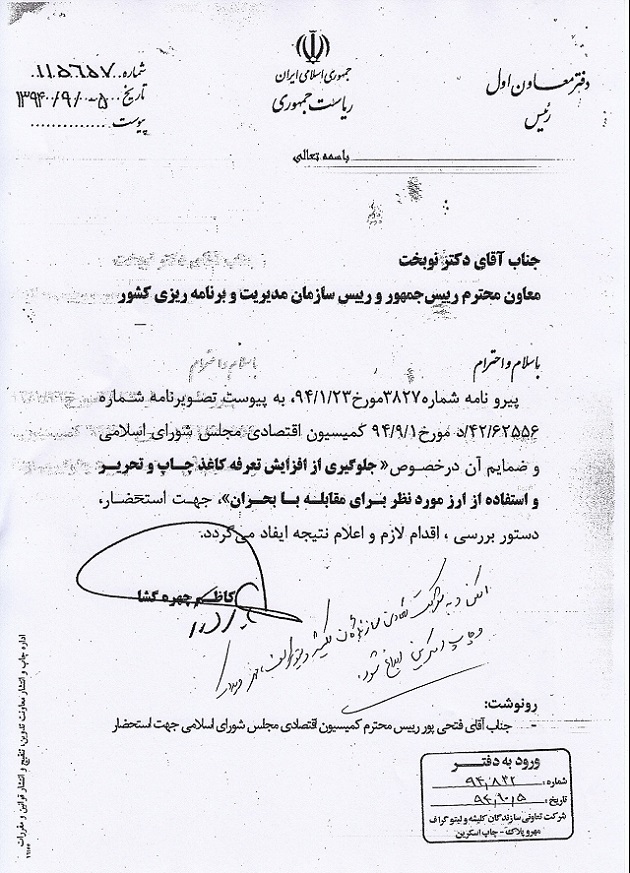 جمهوری اسلامی ایران
ریاست جمهوری
دفتر معاون اول
رئیس
شماره ۱۱۵۶۵۷
تاریخ ۱۳۹۴۰/۹/۰۰۵
پیوست
باسمه تعالی
جناب آقای دکتر نوبخت
معاون محترم رییس‌جمهور و رییس سازمان مدیریت و برنامه ریزی کشور
باسلام و احترام
پیرو نامه شماره۳۸۲۷مورخ۹۴/۱/۲۳، به پیوست تصویرنامه شماره
۴۲/۶۲۵۵۶/د مورخ۹۴/۹/۱ کمیسیون اقتصادی مجلس شورای اسلامی
و ضمایم آن درخصوص«جلوگیری از افزایش تعرفه کاغذ چاپ و تحریر
و استفاده از ارز مورد نظر برای مقابله با بحران»، جهت استحضار،
دستور بررسی ، اقدام لازم و اعلام نتیجه ایفاد می‌گردد.
کاظم چهره گشا
رونوشت:
- جناب آقای فتحی پور رییس محترم کمیسیون اقتصادی مجلس شورای اسلامی جهت استحضار
ورود به دفتر
شماره: ۹۴,۸۳۲
تاریخ: ۹۴,۱۰,۵
شرکت تعاونی سازندگان کلیشه و لیتوگراف
مهر و پلاک - چاپ اسکرین
اداره چاپ و انتشار معاونت تدوین، تنقیح و انتشار قوانین و مقررات